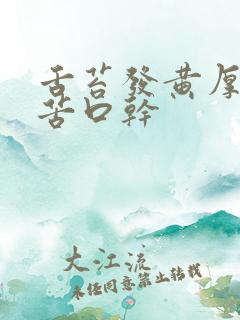 舌苔發黄厚
苦口幹
大江流
未经同意禁止转载